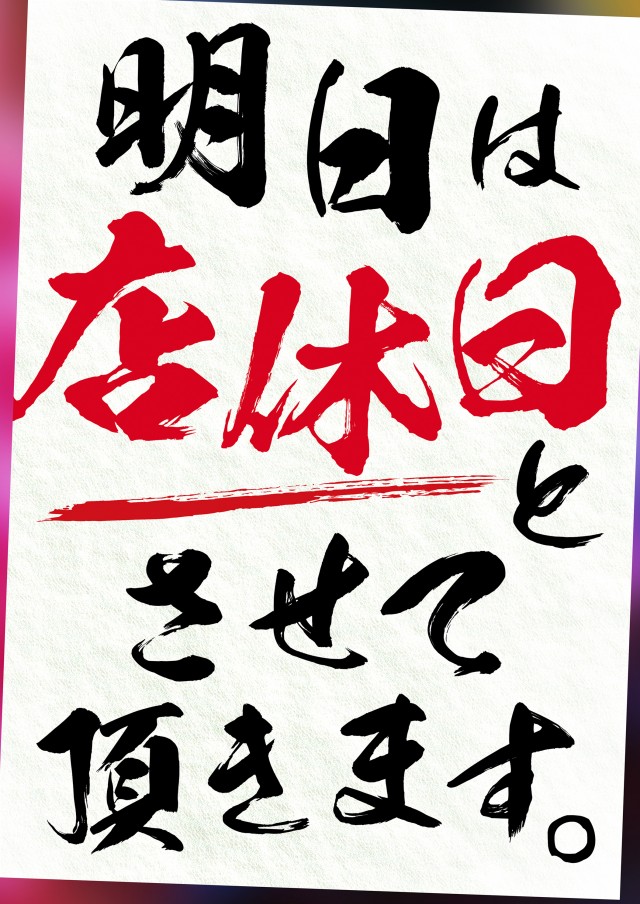 明日は
店休日
と
させて
頂きます。